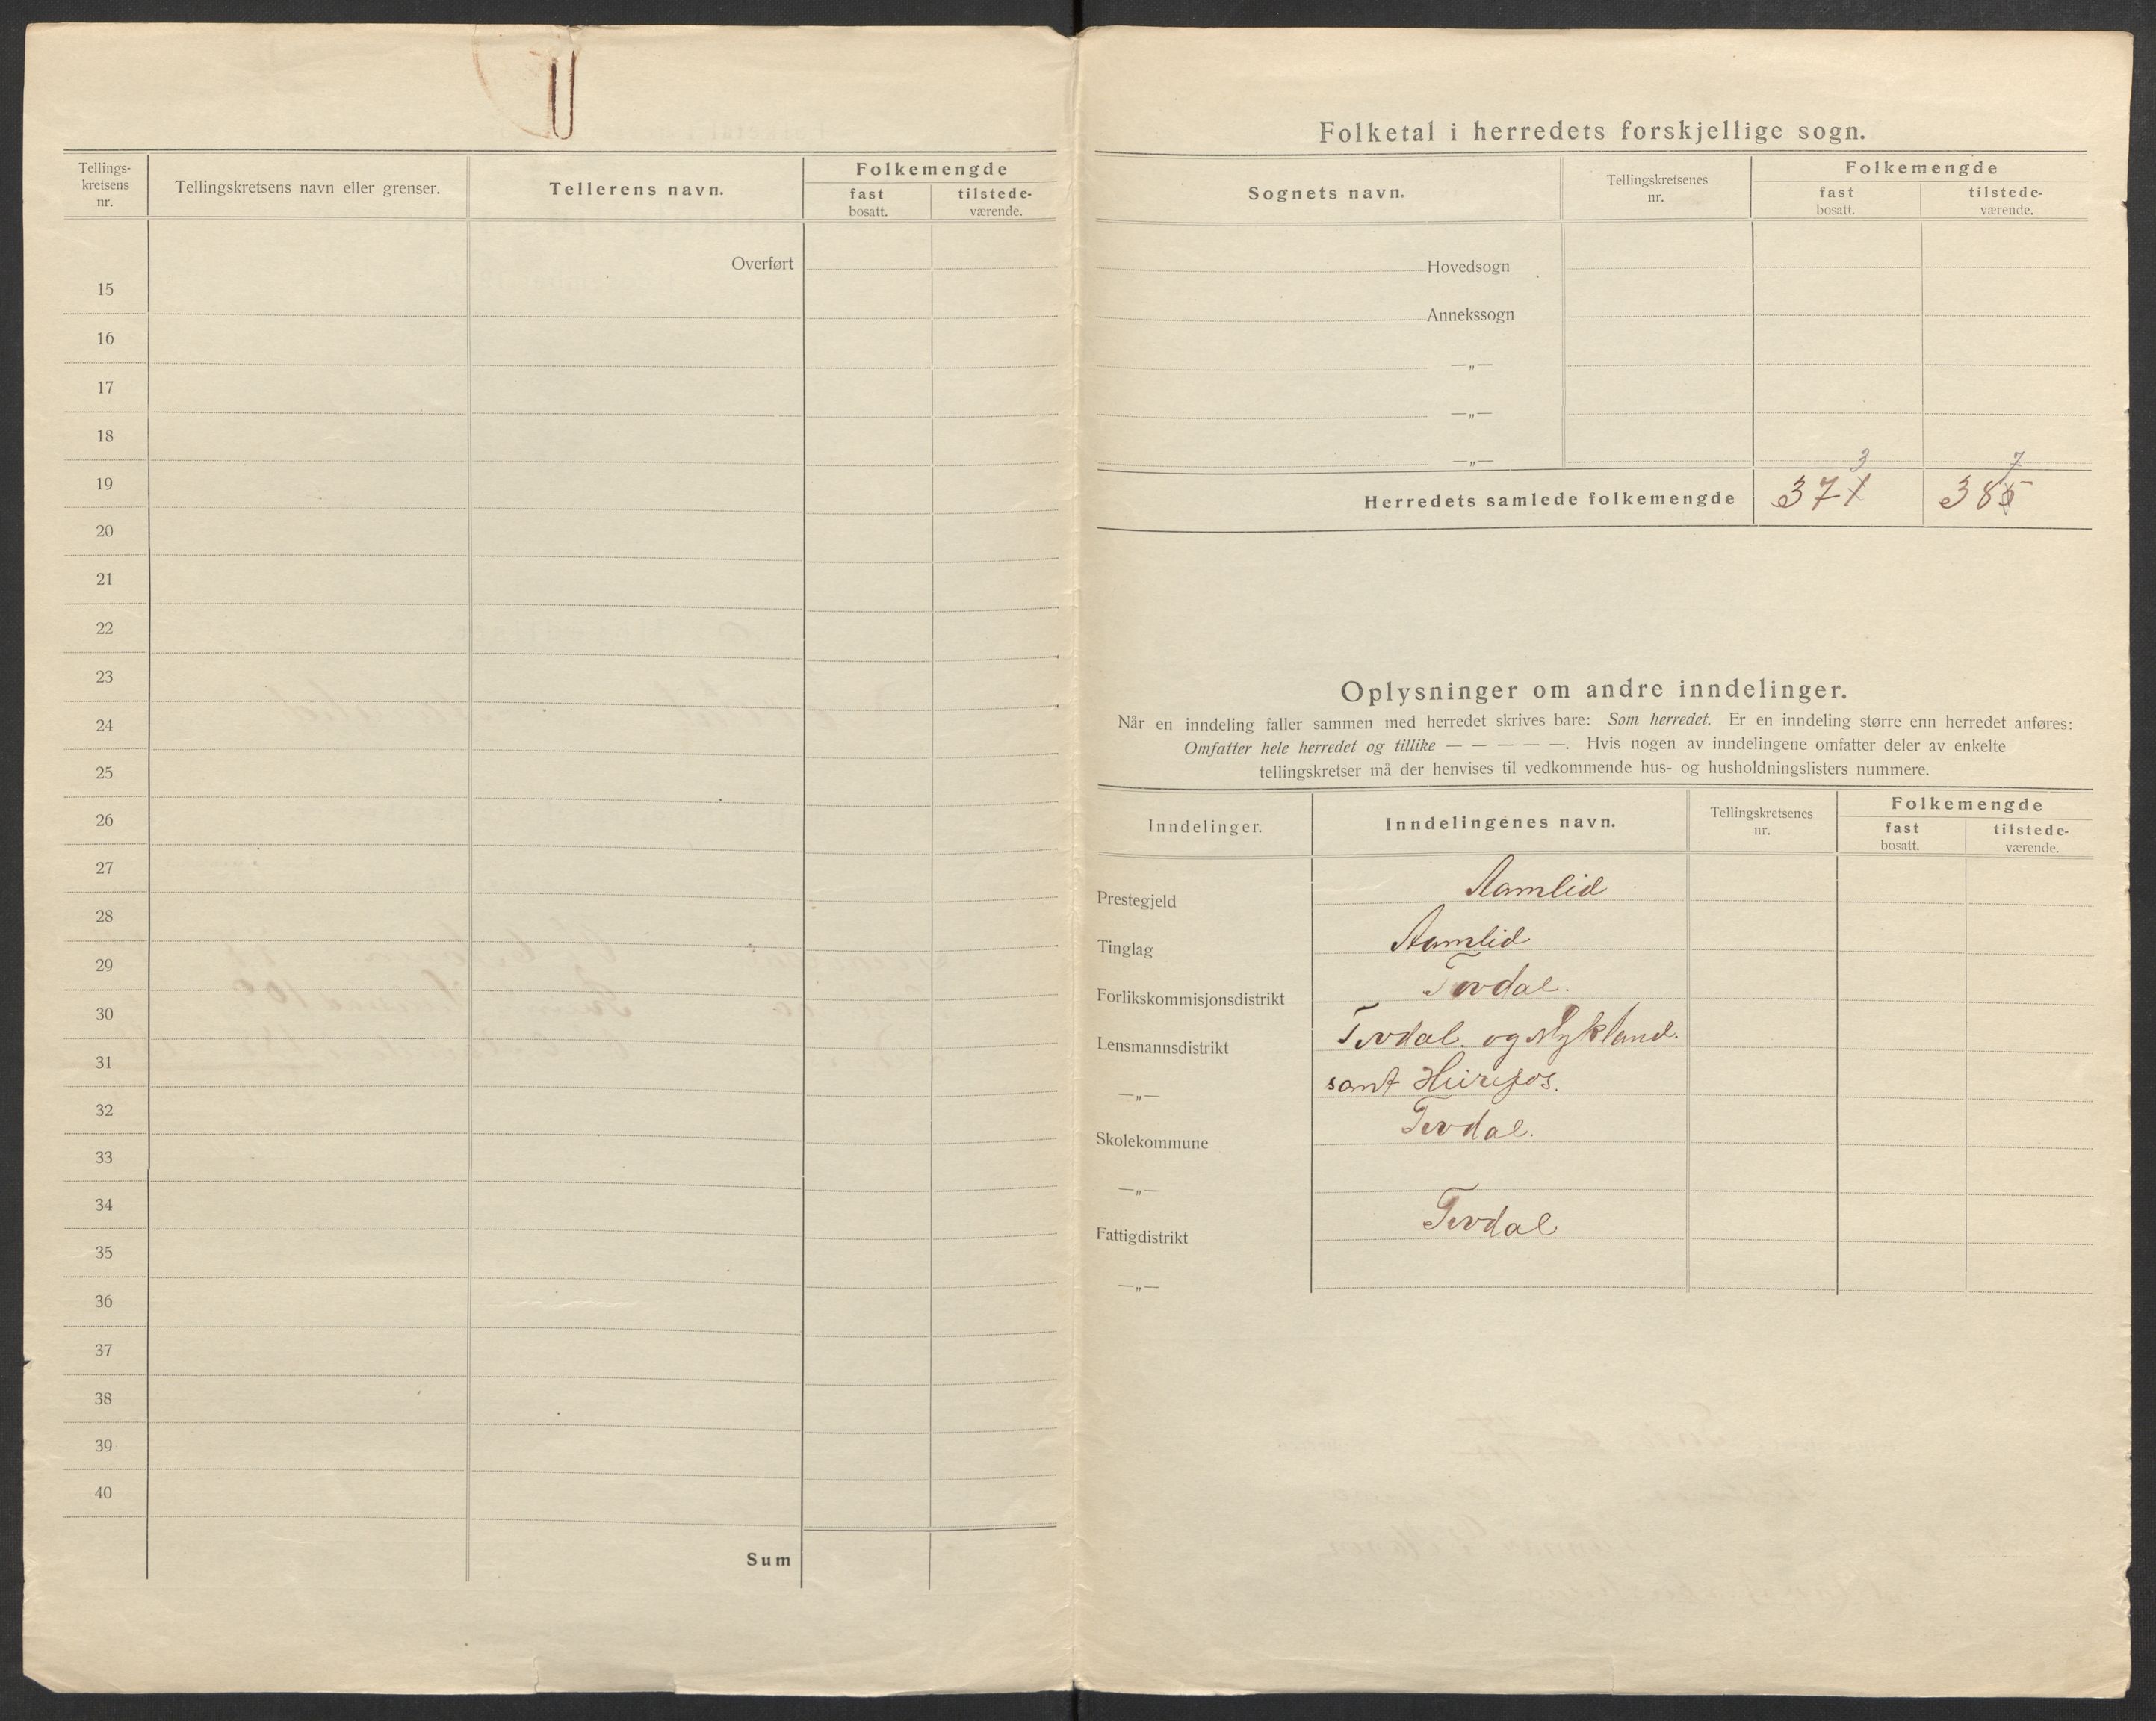 Tellings-
kretsens
nr.
Tellingskretsens navn eller grenser.
Tellerens navn.
Folkemengde
fast
bosatt.
tilstede-
værende.
Overført
15
16
17
18
19
20
21
22
23
24
25
26
27
28
29
30
31
32
33
34
35
36
37
38
39
40
Sum
Folketal i herredets forskjellige sogn.
Sognets navn.
Tellingskretsenes
nr.
Folkemengde
fast
bosatt.
tilstede-
værende.
Hovedsogn
Annekssogn
—„—
—„—
—„—
3 7
Herredets samlede folkemengde 371 385
Oplysninger om andre inndelinger.
Når en inndeling faller sammen med herredet skrives bare: Som herredet. Er en inndeling større enn herredet anføres:
Omfatter hele herredet og tillike — — — — —. Hvis nogen av inndelingene omfatter deler av enkelte
tellingskretser må der henvises til vedkommende hus- og husholdningslisters nummere.
Inndelinger.
Inndelingenes navn.
Tellingskretsenes
nr.
Folkemengde
fast
bosatt.
tilstede-
værende.
Prestegjeld Aamlid
Tinglag Aamlid
Forlikskommisjonsdistrikt Tovdal.
Lensmannsdistrikt Tovdal. og Mykland.
—„— samt Hürefos.
Skolekommune Tovdal.
—„—
Fattigdistrikt Tovdal
—„—